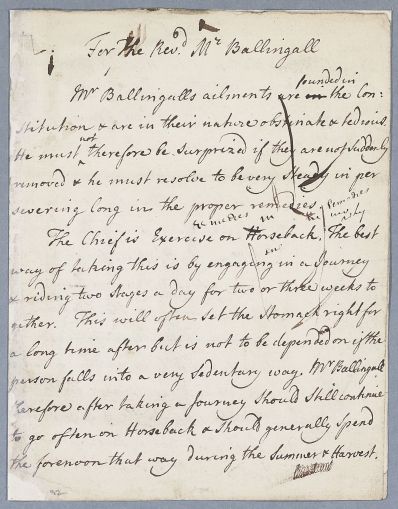 For the Revd. Mr Ballingall
founded in
Mr Ballingalls ailments are in the Con:
stitution & are in their nature obstinate & tedious.
not
He must therefore be surprized if they are not suddenly
removed & he must resolve to be very Steady in per
severing long in the proper remedies.
remedies in the Remedies
The Chief is Exercise on Horseback. The best
way of taking this is by engaging in a Journey
& riding two stages a day for two or three weeks to
gether. This will often set the Stomach right for
a long time after but is not to be depended on if the
person falls into a very Sedentary way. Mr Ballingall
therefore after taking a Journey should Still continue
to go often on Horseback & should generally Spend
the forenoon that way during the Summer & Harvest.